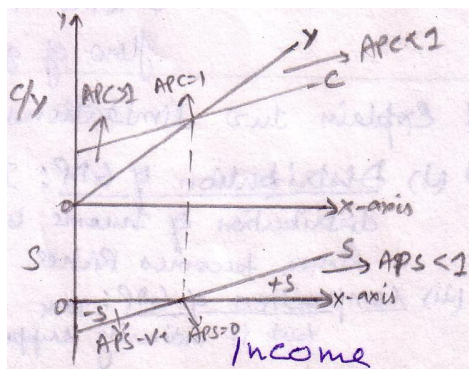 Y
Y
APC<1
C/Y
APC>1
APC=1
C
O
X-axis
S
S
APS<1
+S
O
X-axis
-S
APS-ve
APS=0
Income